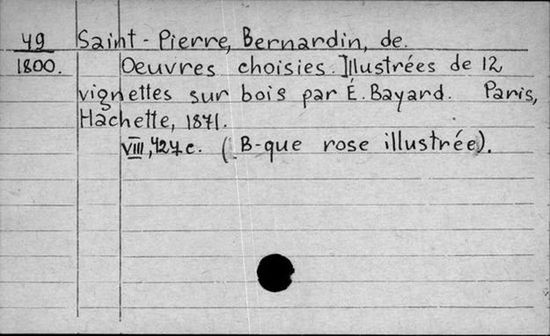 49 Saint-Pierre, Bernardin, de.
1800. Oeuvres choisies. Illustrées de 12
vignettes sur bois par É. Bayard. Paris,
Hachette, 1871.
VIII, 427 c. (B-que rose illustrée).